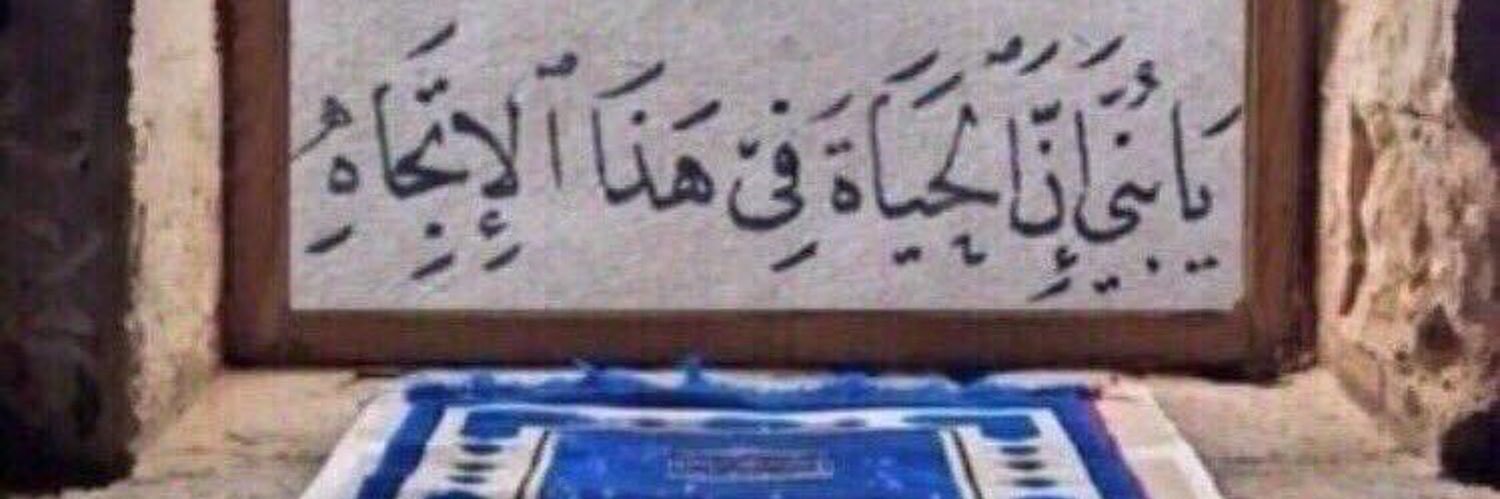 يَا بُنَيَّ إِنَّ الْحَيَاةَ فِيّ هَذَا ٱلْإِتِّجَاهِ